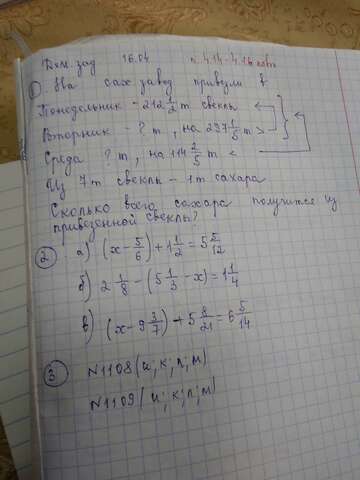 Дом. зад 16.04 п. 4.14-4.16 повт
① На сах. завод привезли в
Понедельник - 212 1/2 т свеклы
Вторник - ? т, на 237 1/5 т >
Среда ? т, на 114 2/5 т <
Из 7 т свеклы - 1 т сахара
Сколько всего сахара получится из
привезенной свеклы?
② а) (x - 5/6) + 1 1/2 = 5 5/12
б) 2 1/8 - (5 1/3 - x) = 1 1/4
в) (x - 9 3/7) + 5 8/21 = 6 5/14
③ N1108 (и; к; л; м)
N1109 (и; к; л; м)